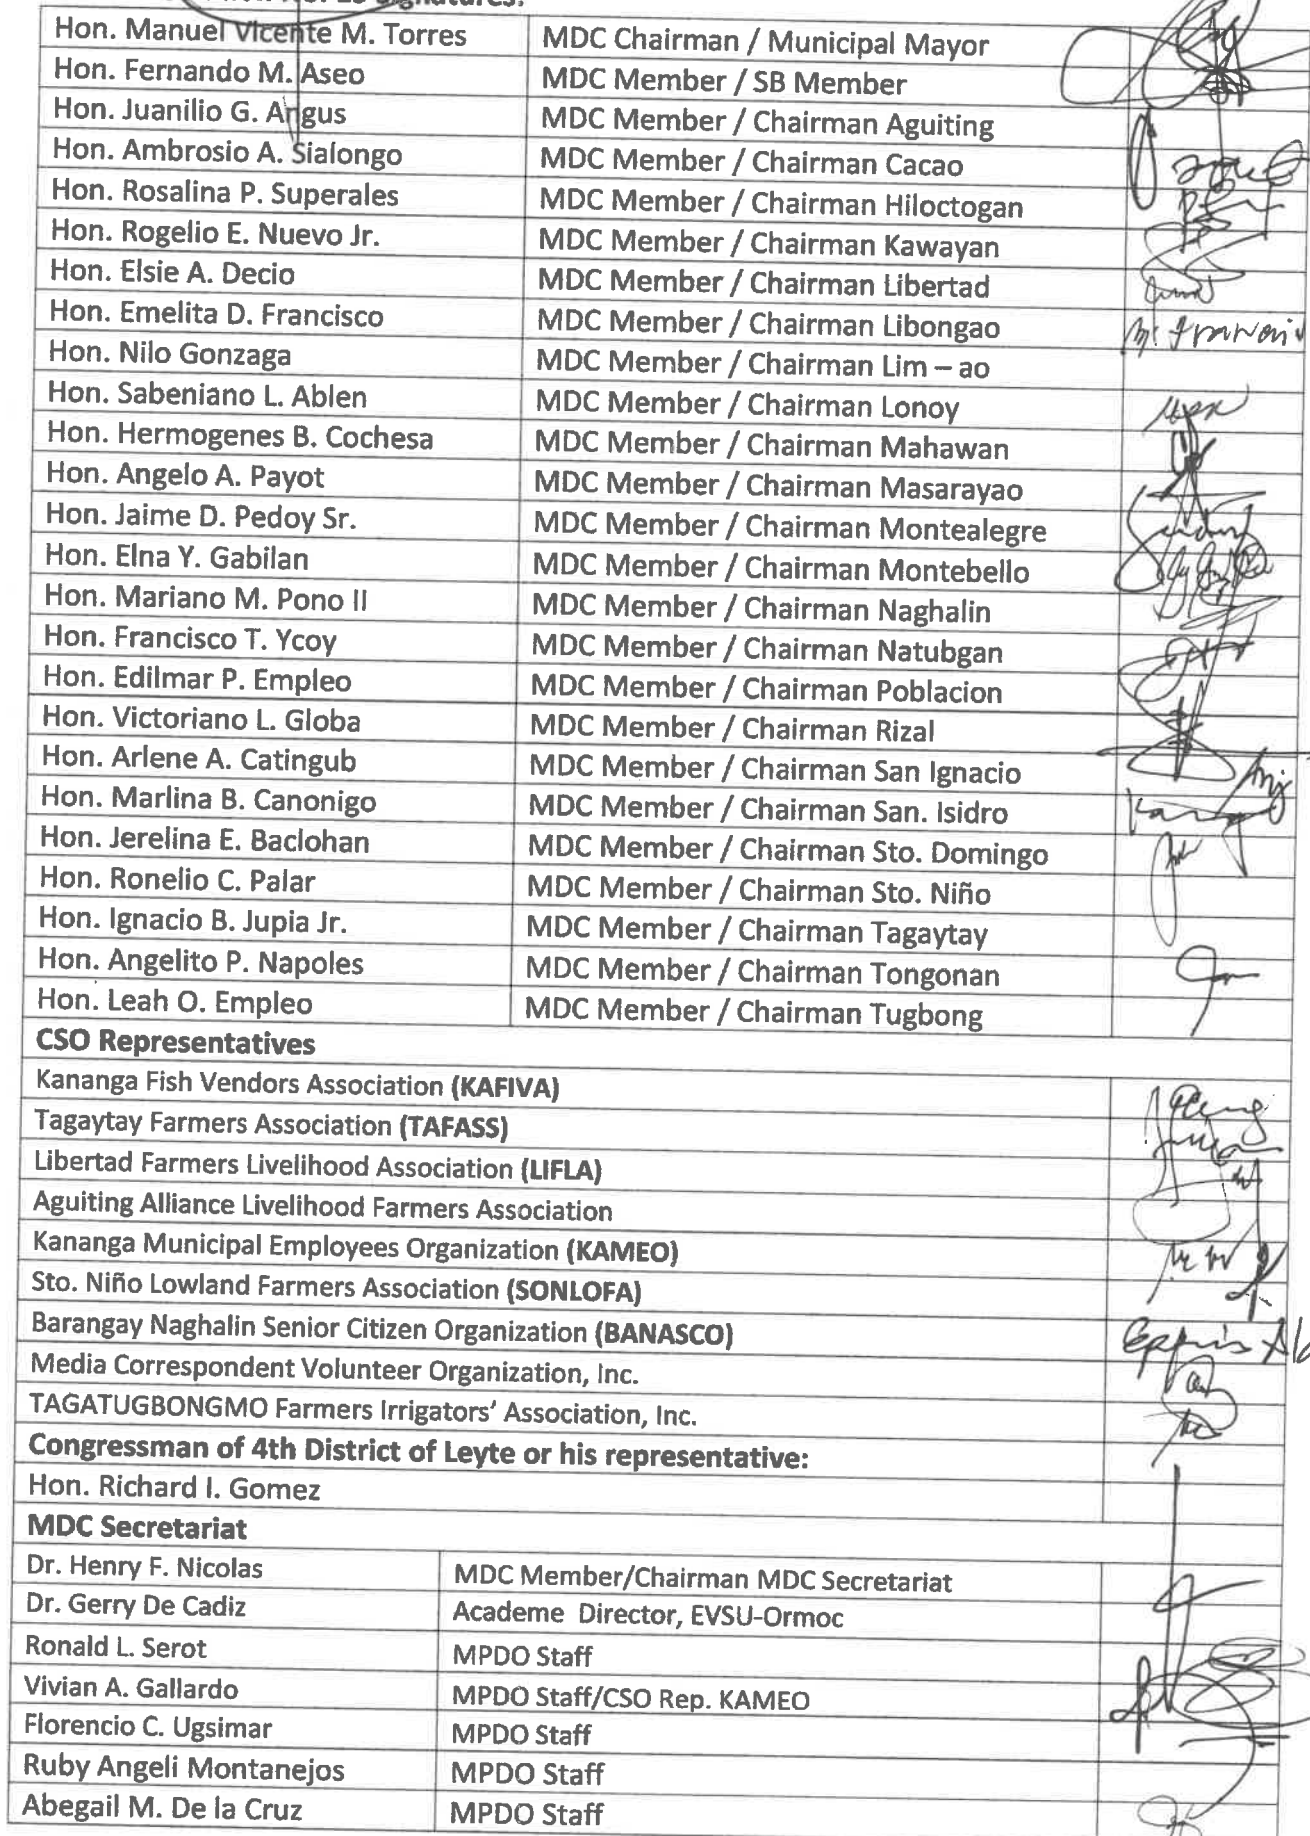 Signatures:
Hon. Manuel Vicente M. Torres MDC Chairman / Municipal Mayor
Hon. Fernando M. Aseo MDC Member / SB Member
Hon. Juanilio G. Angus MDC Member / Chairman Aguiting
Hon. Ambrosio A. Sialongo MDC Member / Chairman Cacao
Hon. Rosalina P. Superales MDC Member / Chairman Hiloctogan
Hon. Rogelio E. Nuevo Jr. MDC Member / Chairman Kawayan
Hon. Elsie A. Decio MDC Member / Chairman Libertad
Hon. Emelita D. Francisco MDC Member / Chairman Libongao
Hon. Nilo Gonzaga MDC Member / Chairman Lim – ao
Hon. Sabeniano L. Ablen MDC Member / Chairman Lonoy
Hon. Hermogenes B. Cochesa MDC Member / Chairman Mahawan
Hon. Angelo A. Payot MDC Member / Chairman Masarayao
Hon. Jaime D. Pedoy Sr. MDC Member / Chairman Montealegre
Hon. Elna Y. Gabilan MDC Member / Chairman Montebello
Hon. Mariano M. Pono II MDC Member / Chairman Naghalin
Hon. Francisco T. Ycoy MDC Member / Chairman Natubgan
Hon. Edilmar P. Empleo MDC Member / Chairman Poblacion
Hon. Victoriano L. Globa MDC Member / Chairman Rizal
Hon. Arlene A. Catingub MDC Member / Chairman San Ignacio
Hon. Marlina B. Canonigo MDC Member / Chairman San. Isidro
Hon. Jerelina E. Baclohan MDC Member / Chairman Sto. Domingo
Hon. Ronelio C. Palar MDC Member / Chairman Sto. Niño
Hon. Ignacio B. Jupia Jr. MDC Member / Chairman Tagaytay
Hon. Angelito P. Napoles MDC Member / Chairman Tongonan
Hon. Leah O. Empleo MDC Member / Chairman Tugbong
CSO Representatives
Kananga Fish Vendors Association (KAFIVA)
Tagaytay Farmers Association (TAFASS)
Libertad Farmers Livelihood Association (LIFLA)
Aguiting Alliance Livelihood Farmers Association
Kananga Municipal Employees Organization (KAMEO)
Sto. Niño Lowland Farmers Association (SONLOFA)
Barangay Naghalin Senior Citizen Organization (BANASCO)
Media Correspondent Volunteer Organization, Inc.
TAGATUGBONGMO Farmers Irrigators' Association, Inc.
Congressman of 4th District of Leyte or his representative:
Hon. Richard I. Gomez
MDC Secretariat
Dr. Henry F. Nicolas MDC Member/Chairman MDC Secretariat
Dr. Gerry De Cadiz Academe Director, EVSU-Ormoc
Ronald L. Serot MPDO Staff
Vivian A. Gallardo MPDO Staff/CSO Rep. KAMEO
Florencio C. Ugsimar MPDO Staff
Ruby Angeli Montanejos MPDO Staff
Abegail M. De la Cruz MPDO Staff